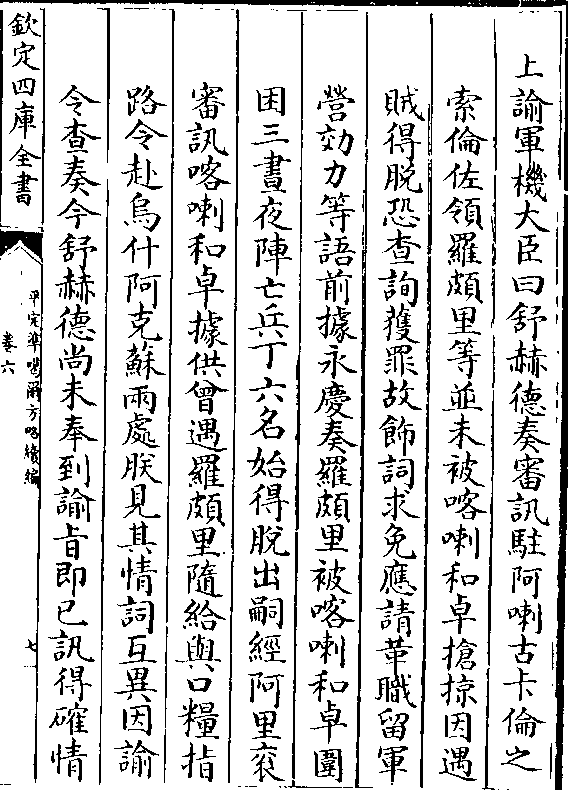 上諭軍機大臣曰舒赫德奏審訊駐阿喇古卡倫之
索倫佐領羅頗里等並未被喀喇和卓搶掠因遇
賊得脫恐查詢獲罪故飾詞求免應請革職留軍
營効力等語前據永慶奏羅頗里被喀喇和卓圍
困三晝夜陣亡兵丁六名始得脫出嗣經阿里衮
審訊喀喇和卓據供曾遇羅頗里隨給與口糧指
路令赴烏什阿克蘇兩處朕見其情詞互異因諭
令查奏今舒赫德尚未奉到諭旨即已訊得確情
欽定四庫全書
平定準噶爾方略續編
卷六
七